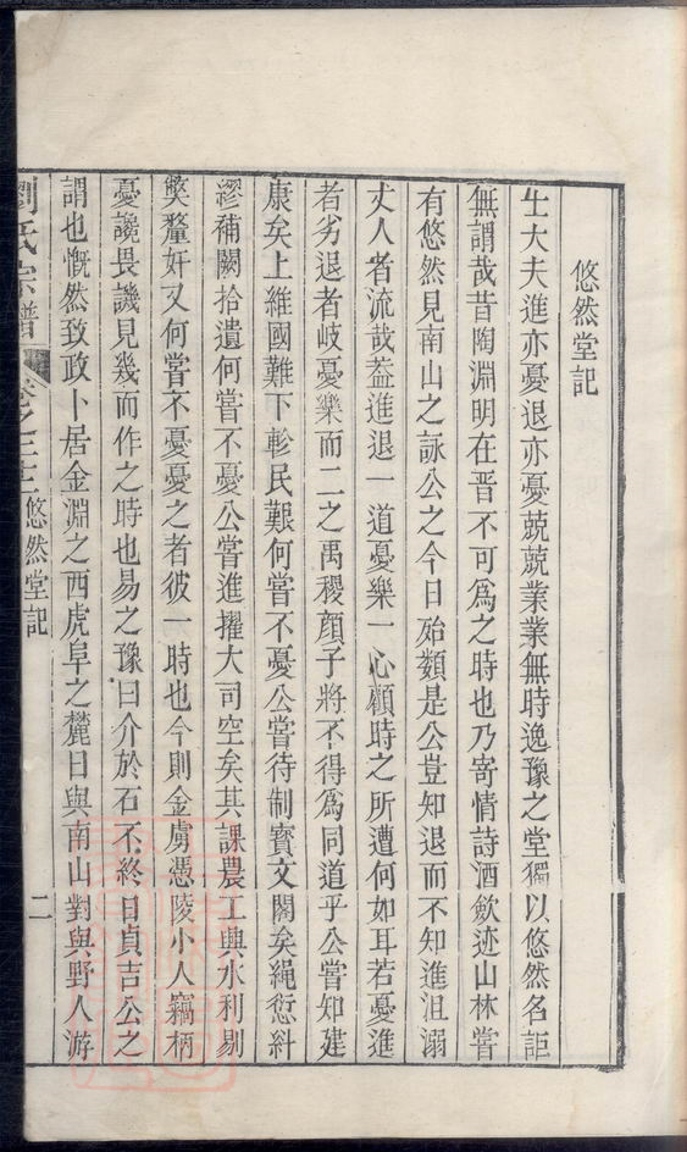 悠然堂記
士大夫進亦憂退亦憂兢兢業業無時逸豫之堂獨以悠然名詎
無謂哉昔陶淵明在晋不可爲之時也乃寄情詩酒歛迹山林嘗
有悠然見南山之詠公之今日殆類是公豈知退而不知進沮溺
丈人者流哉葢進退一道憂樂一心顧時之所遭何如耳若憂進
者劣退者岐憂樂而二之禹稷顔子將不得爲同道乎公嘗知建
康矣上維國難下軫民艱何嘗不憂公嘗待制寶文閣矣繩愆糾
繆補闕拾遺何嘗不憂公嘗進擢大司空矣其課農工興水利剔
獘釐奸又何嘗不憂憂之者彼一時也今則金虜憑陵小人竊柄
憂讒畏譏見幾而作之時也易之豫曰介於石不終日貞吉公之
謂也慨然致政卜居金淵之西虎阜之麓日與南山對與野人游
劉氏宗譜 卷之三十二 悠然堂記 二